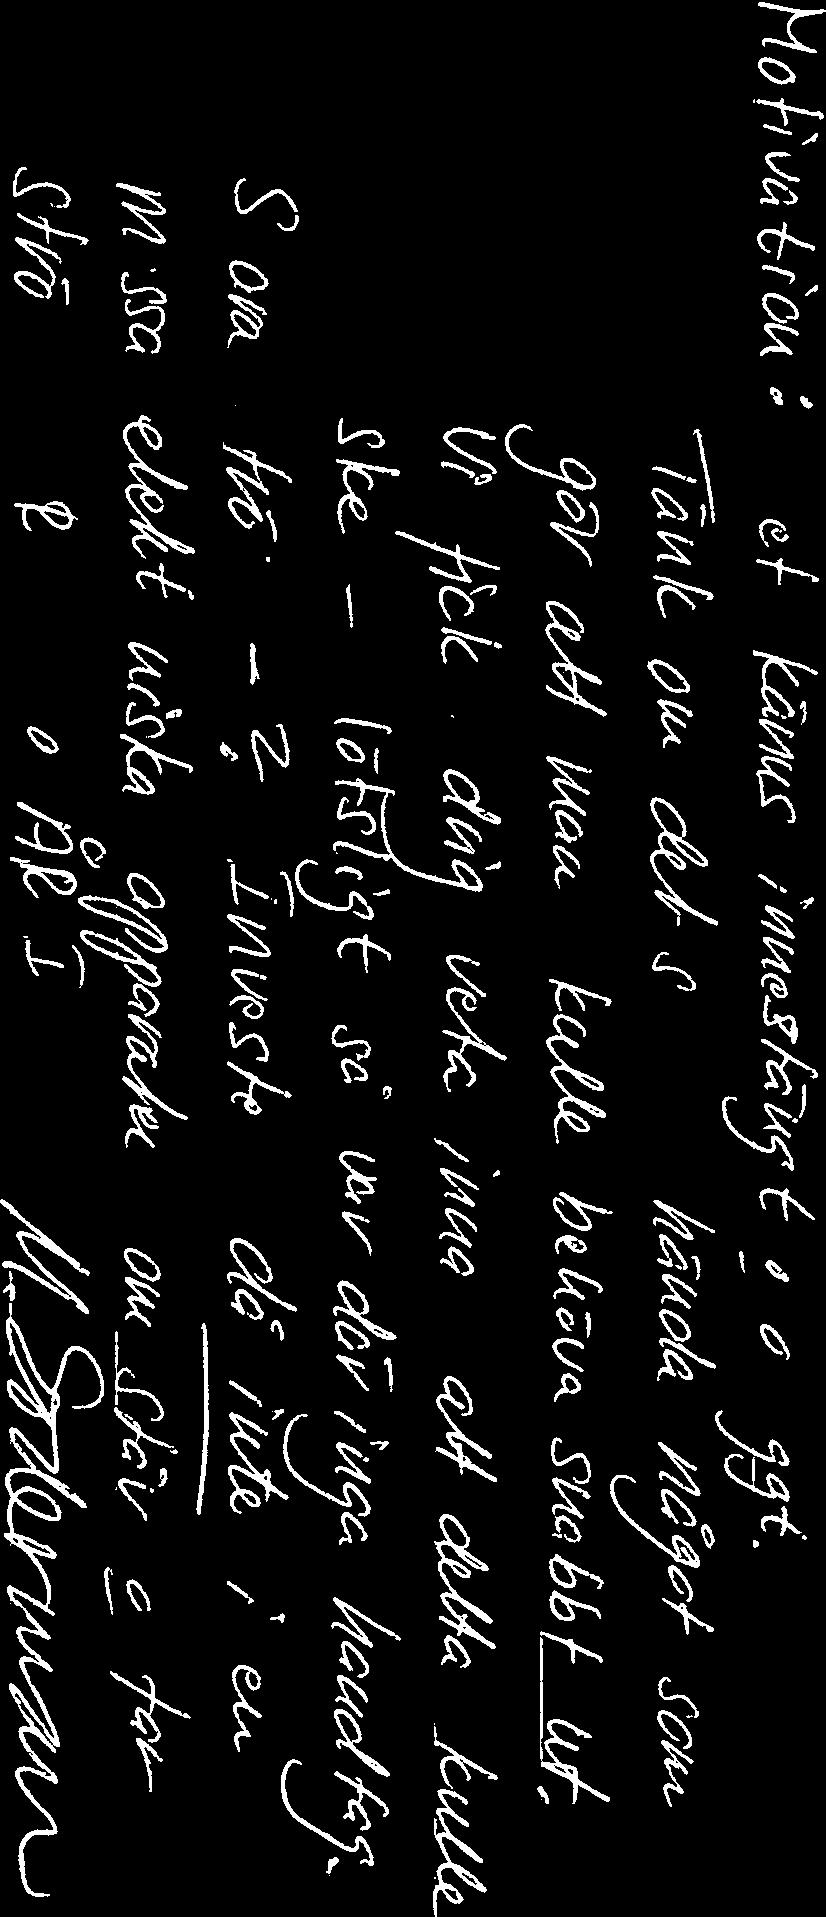 Motivation: et känns innestängt : o ggt.
Tänk om det s hända något som
gör att man kulle behöva snabbt ut.
Vi fick dig veta inna att detta kulle
ske - löfsligt så var där inga handtag.
S ora trö. - ? Investe då inte i en
m ssa elekt uiska apparate om stör o tar
strö R o ÄR I M. Söderman